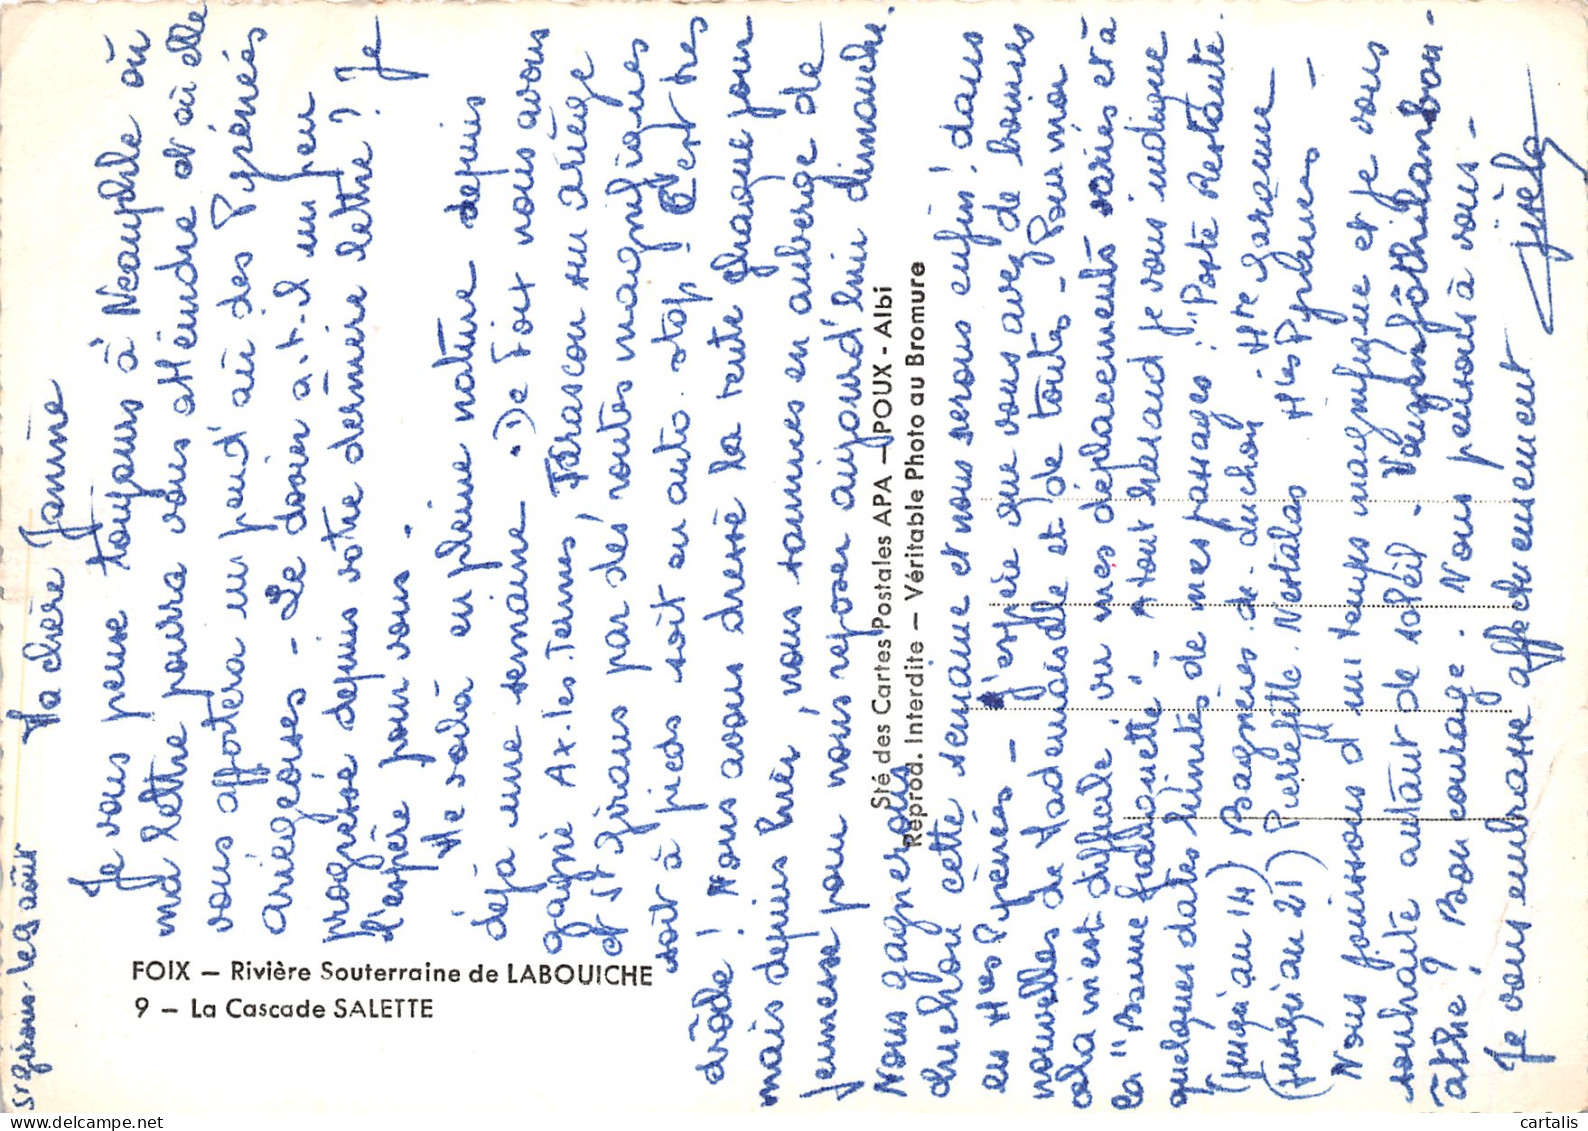 St Girons. le 9 août
Ma chère Janine
Je vous pense toujours à Neauphle où
ma lettre pourra vous atteindre et où elle
vous apportera un peu d'air des Pyrénées
ariégeoises - Le dosier a.t.il un peu
progressé depuis votre dernière lettre ? Je
l'espère pour vous.
Me voilà en pleine nature depuis
déjà une semaine. De Foix nous avons
gagné Ax.les.Termes, Tarascon sur ariège
et St Girons par des routes magnifiques
soit à pieds soit en auto.stop ! C'est très
drôle ! Nous avons dressé la tente chaque jour
mais depuis hier, nous sommes en auberge de
jeunesse pour nous reposer aujourd'hui dimanche.
Nous gagnerons
Luchon cette semaine et nous serons enfin ! dans
les Htes Pyrénées - J'espère que vous avez de bonnes
nouvelles de Mademoiselle et de toutes - Pour moi
cela m'est difficile vu mes déplacements variés et à
la "Bonne franquette" - A tout hasard je vous indique
quelques dates limites de mes passages : "Poste Restante.
(jusqu'au 14) Bagnères.de.Luchon. Hte Garonne
(jusqu'au 21) Pierrefitte.Nestalas Htes Pyrénées -
Nous jouissons d'un temps magnifique et je vous
souhaite autant de soleil -
âtre ? Bon courage. Nous pensons à vous -
Je vous embrasse affectueusement
Gisèle
FOIX — Rivière Souterraine de LABOUICHE
9 — La Cascade SALETTE
Sté des Cartes Postales APA — POUX - Albi
Reprod. Interdite — Véritable Photo au Bromure
cartalis